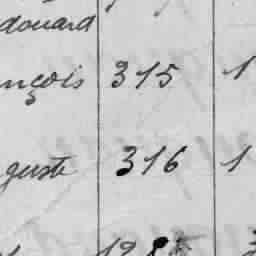 douard
nçois 315 1
guste 316 1